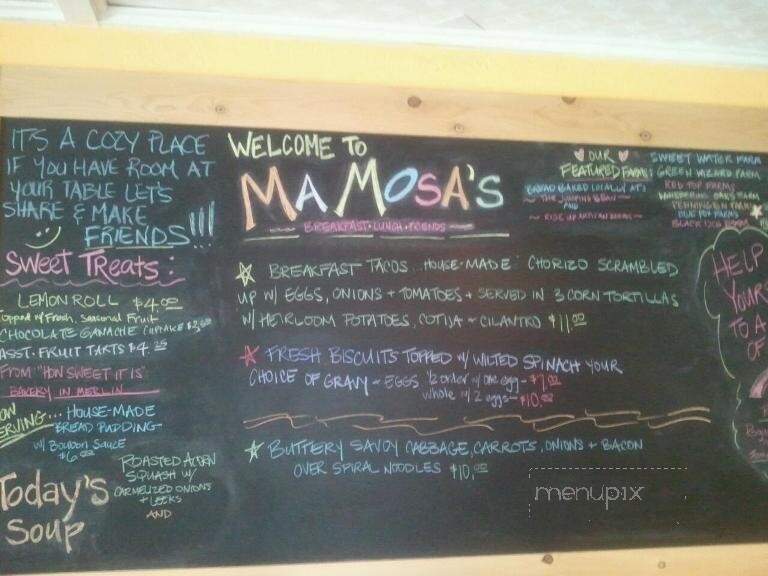 IT'S A COZY PLACE
IF YOU HAVE ROOM AT
YOUR TABLE LET'S
SHARE & MAKE
FRIENDS!!!
SWEET TREATS:
LEMON ROLL $4.00
Topped w/ Fresh, Seasonal Fruit
CHOCOLATE GANACHE CUPCAKE
ASST. FRUIT TARTS $4.25
FROM "HOW SWEET IT IS"
BAKERY IN MERLIN
SERVING... HOUSE-MADE
BREAD PUDDING
w/ BOURBON SAUCE
$6.00
Today's
Soup
ROASTED ACORN
SQUASH w/
CARMELIZED ONIONS
+ LEEKS
AND
WELCOME TO
MAMOSA'S
BREAKFAST·LUNCH·FRIENDS
BREAKFAST TACOS HOUSE-MADE CHORIZO SCRAMBLED
UP W/ EGGS, ONIONS + TOMATOES + SERVED IN 3 CORN TORTILLAS
W/ HEIRLOOM POTATOES, COTIJA + CILANTRO $11.00
FRESH BISCUITS TOPPED w/ WILTED SPINACH YOUR
CHOICE OF GRAVY - EGGS 1/2 order w/ one egg - $7.00
whole w/ 2 eggs - $10.00
BUTTERY SAVOY CABBAGE, CARROTS, ONIONS + BACON
OVER SPIRAL NOODLES $10.00
OUR
FEATURED FARMS:
BREAD BAKED LOCALLY AT:
~ THE JUMPING BEAN ~
AND
~ RISE UP ARTISAN BREADS ~
SWEET WATER FARM
GREEN WIZARD FARM
RED TOP FARMS
PENNINGTON FARMS
BLUE FOX FARMS
BLACK DOG FARM
HELP
YOURS
TO A
OF
menupix